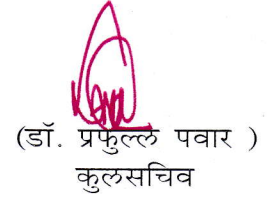 (डॉ. प्रफुल्ल पवार )
कुलसचिव